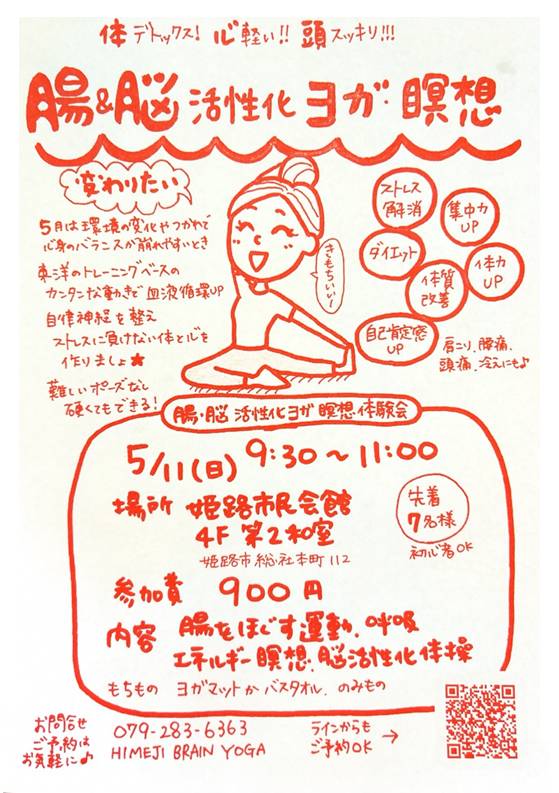 体デトックス! 心軽い!! 頭スッキリ!!!
腸&脳活性化ヨガ・瞑想
変わりたい
5月は環境の変化やつかれで
心身のバランスが崩れやすいとき
東洋のトレーニングベースの
カンタンな動きで血液循環UP
自律神経を整え
ストレスに負けない体と心を
作りましょ★
難しいポーズなし
硬くてもできる!
きもちいい〜!
ストレス
解消
集中力
UP
ダイエット
体質
改善
体力
UP
自己肯定感
UP
肩こり、腰痛、
頭痛、冷えにも♪
腸・脳 活性化ヨガ 瞑想 体験会
5/11(日) 9:30〜11:00
場所 姫路市民会館
4F 第2和室
姫路市総社本町112
先着
7名様
初心者OK
参加費 900円
内容 腸をほぐす運動、呼吸
エネルギー瞑想、脳活性化体操
もちもの ヨガマットかバスタオル、のみもの
お問合せ
ご予約は
お気軽に♪
079-283-6363
HIMEJI BRAIN YOGA
ラインからも
ご予約OK →